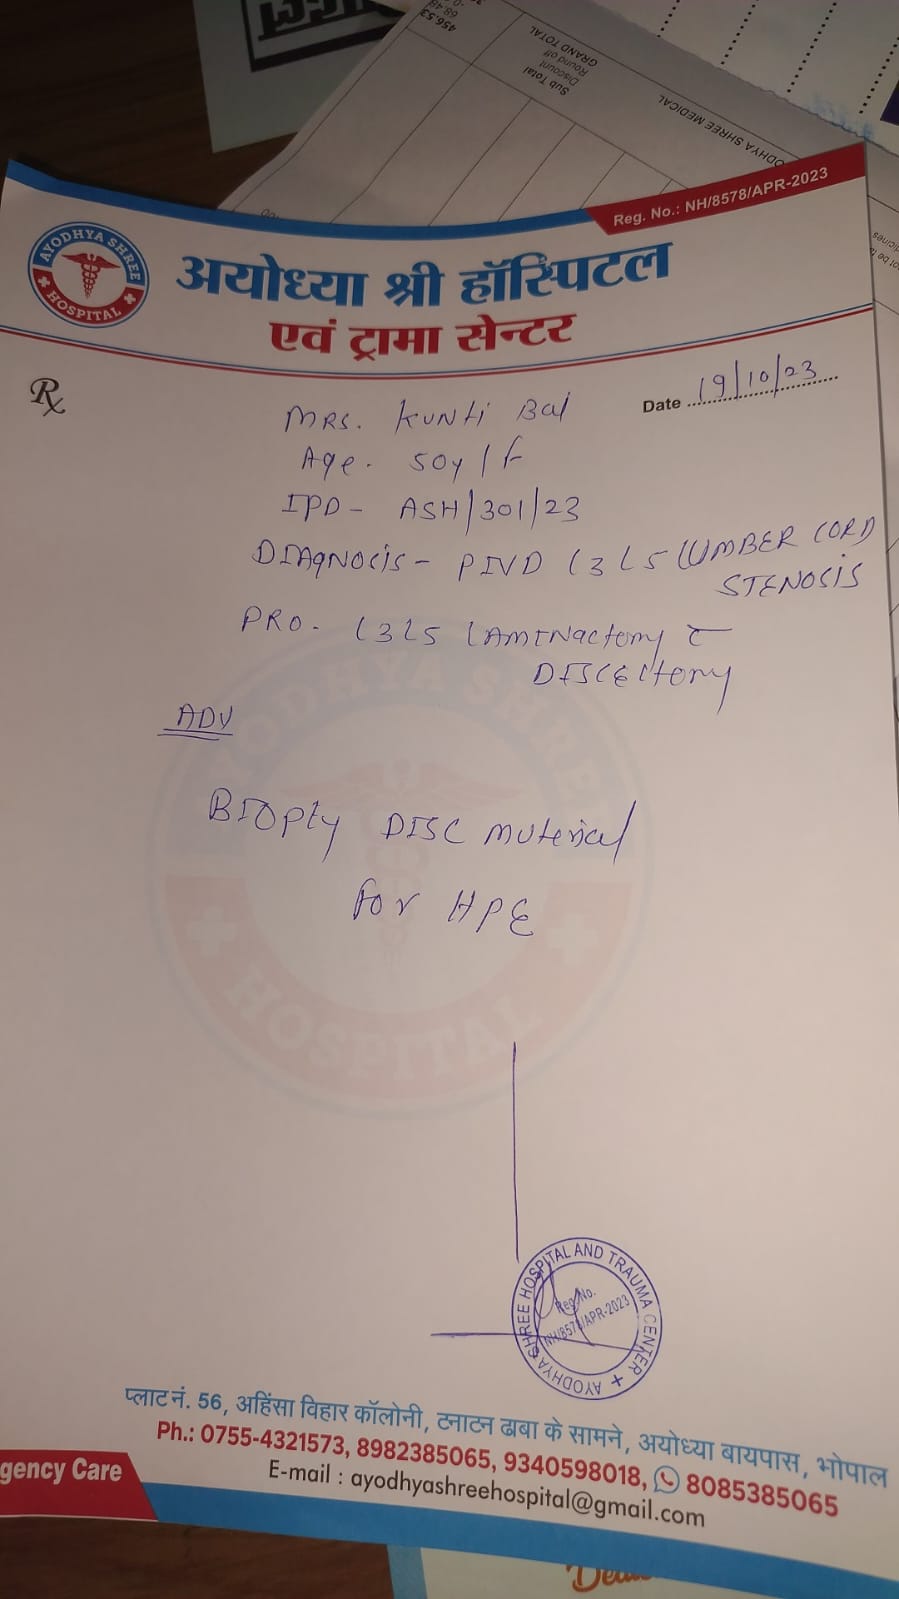 456.53
Sub Total
Discount
Round off
GRAND TOTAL
SHREE MEDICAL
Reg. No.: NH/8578/APR-2023
AYODHYA SHREE
HOSPITAL
अयोध्या श्री हॉस्पिटल
एवं ट्रामा सेन्टर
Rx
Date 19/10/23
MRS. KUNti Bai
Age. 50y/f
IPD - ASH/301/23
DIAgNOsis - PIVD L3 L5 LUMBER CORD
STENOSIS
PRO. L3L5 LAMINactomy c̄
DISCEctomy
ADV
BIOpty DISC muterial
for HPE
AYODHYA SHREE
HOSPITAL
AYODHYA SHREE HOSPITAL AND TRAUMA CENTER +
Reg.No.
NH/8578/APR-2023
प्लाट नं. 56, अहिंसा विहार कॉलोनी, टनाटन ढाबा के सामने, अयोध्या बायपास, भोपाल
Ph.: 0755-4321573, 8982385065, 9340598018, 8085385065
gency Care
E-mail : ayodhyashreehospital@gmail.com